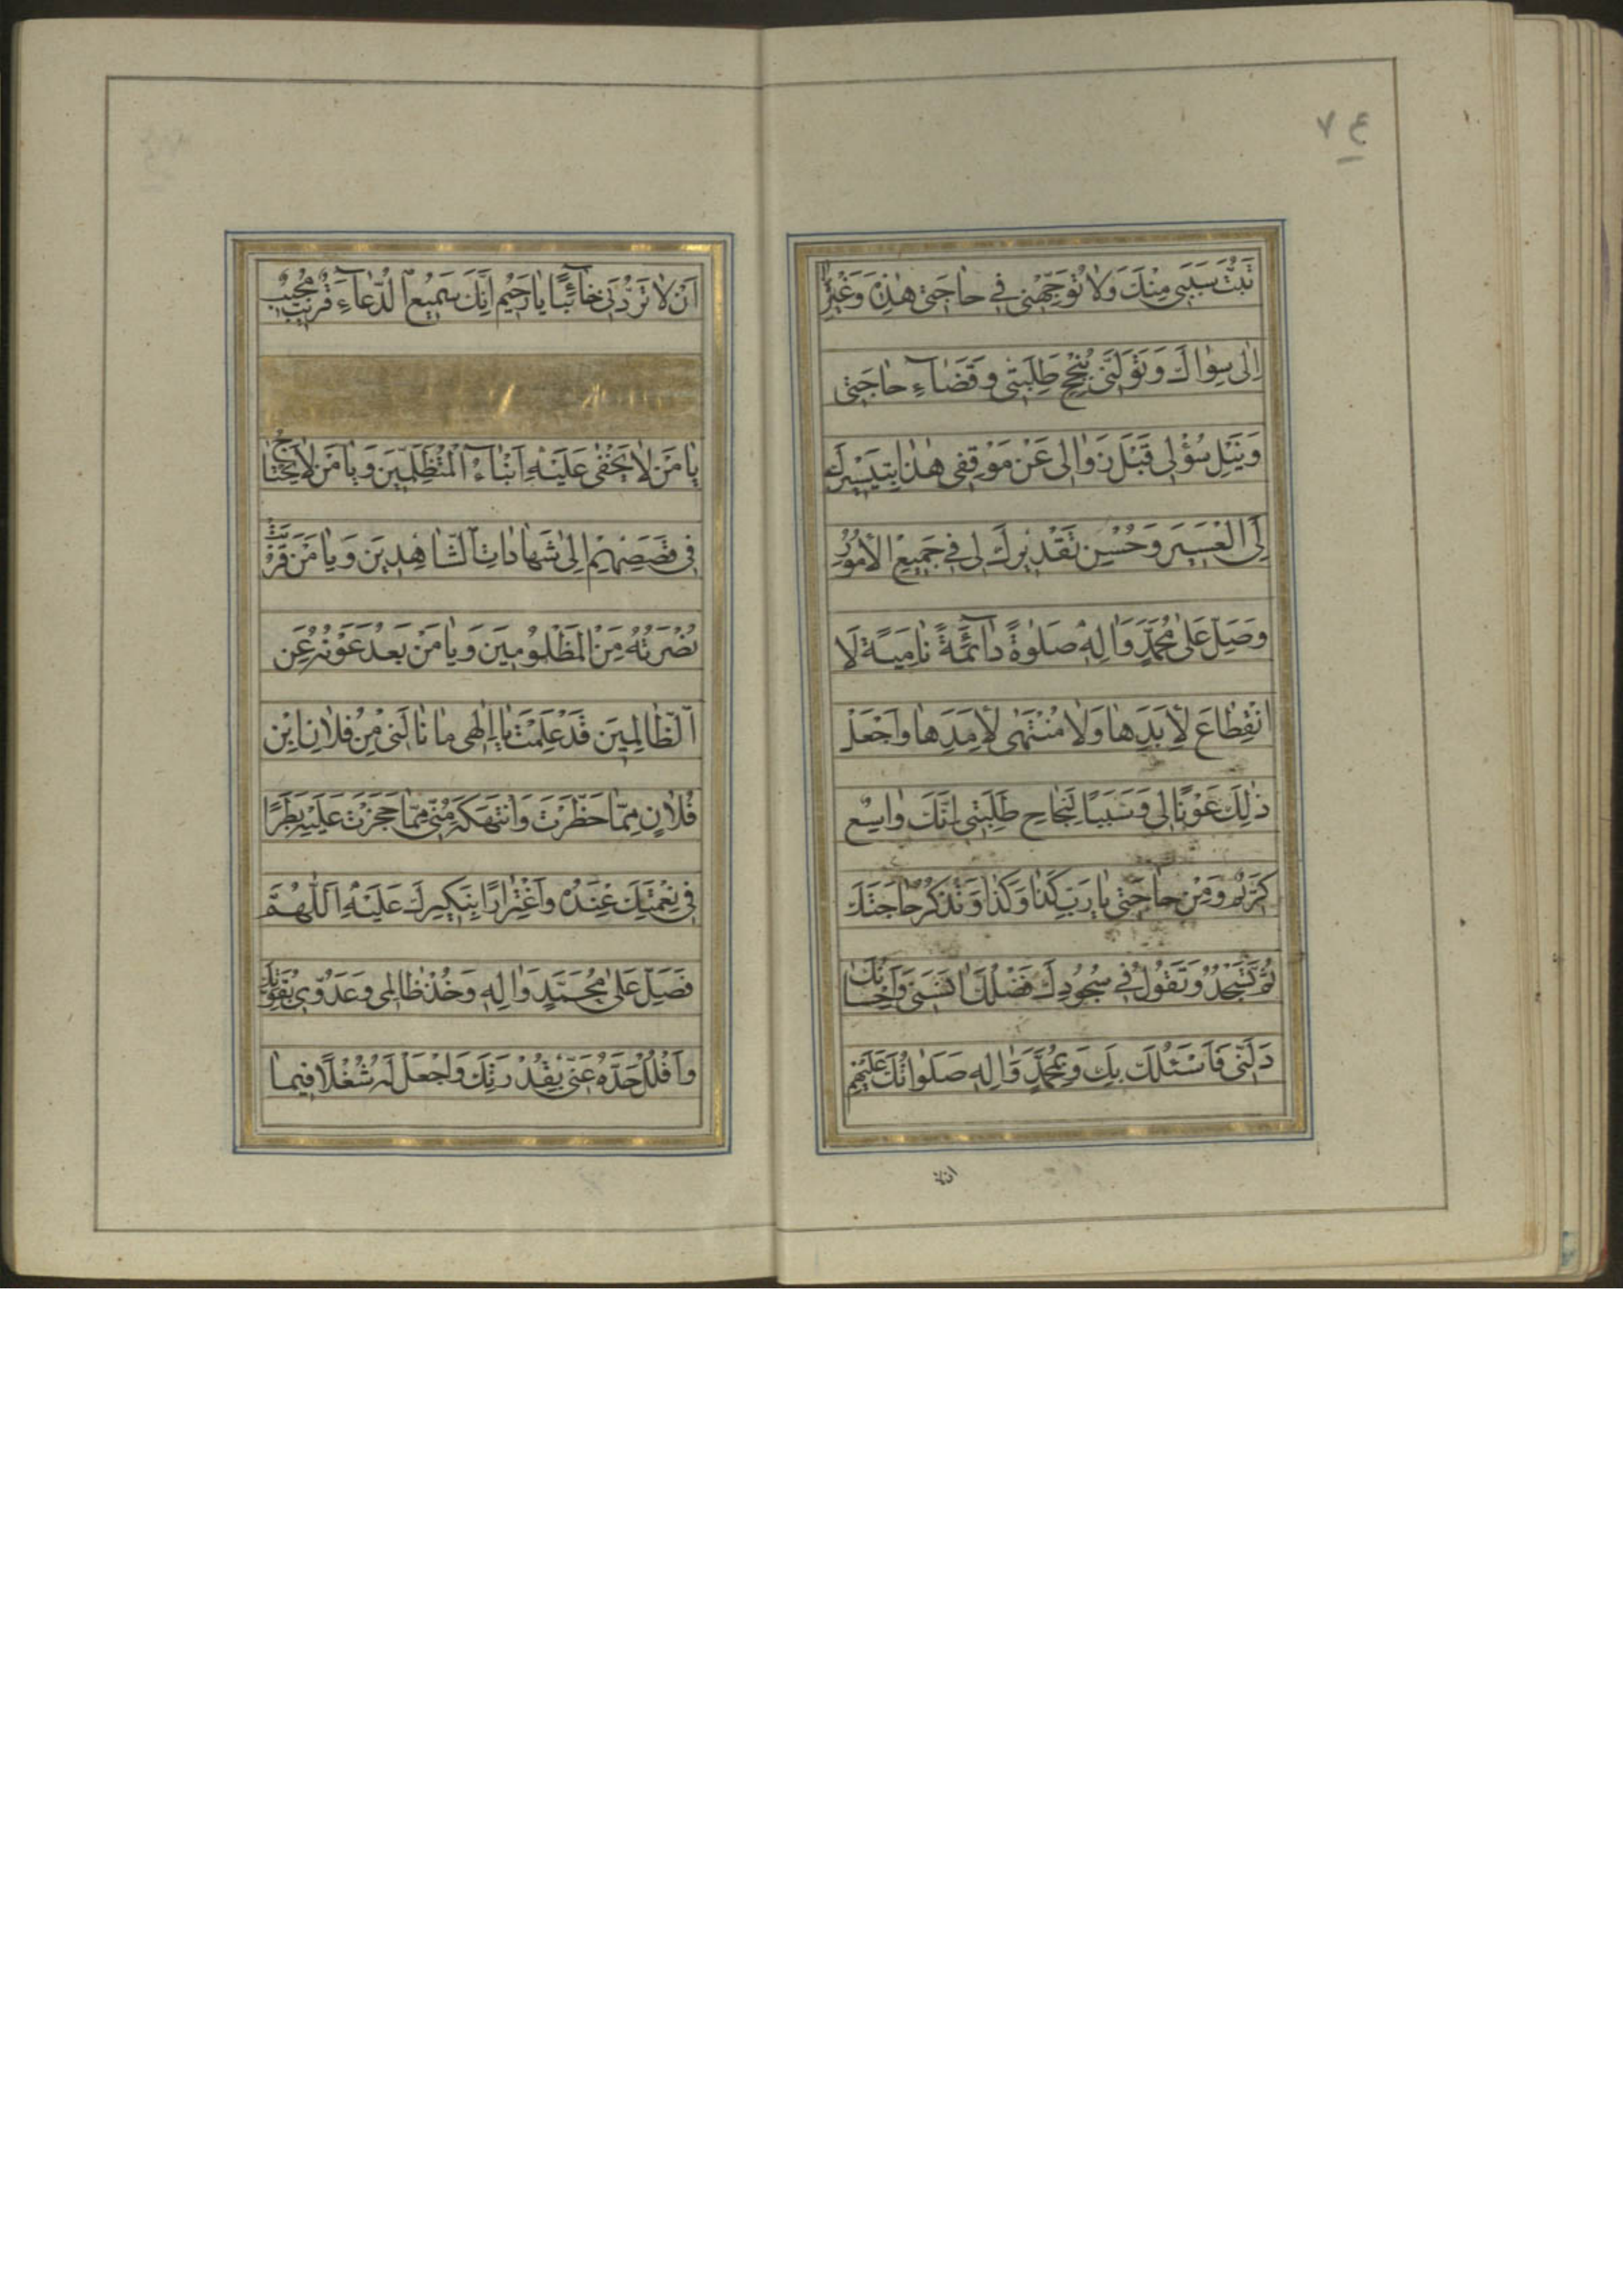 ٧٤
تَبُتَّ سَبَبِى مِنْكَ وَلَا تُوَجِّهْنِى فِى حَاجَتِى هٰذِهِ وَغَيْرِهَا
اِلٰى سِوَاكَ وَتَوَلَّنِى بِنُجْحِ طَلِبَتِى وَقَضَاءِ حَاجَتِى
وَنَيْلِ سُؤْلِى قَبْلَ زَوَالِى عَنْ مَوْقِفِى هٰذَا بِتَيْسِيرِكَ
لِىَ الْعَسِيرَ وَحُسْنِ تَقْدِيرِكَ لِى فِى جَمِيعِ الْاُمُورِ
وَصَلِّ عَلٰى مُحَمَّدٍ وَاٰلِهِ صَلٰوةً دَائِمَةً نَامِيَةً لَا
انْقِطَاعَ لِاَبَدِهَا وَلَا مُنْتَهٰى لِاَمَدِهَا وَاجْعَلْ
ذٰلِكَ عَوْنًا لِى وَسَبَبًا لِنَجَاحِ طَلِبَتِى اِنَّكَ وَاسِعٌ
كَرِيمٌ وَمِنْ حَاجَتِى يَا رَبِّ كَذَا وَكَذَا وَتَذْكُرُ حَاجَتَكَ
ثُمَّ تَسْجُدُ وَتَقُولُ فِى سُجُودِكَ فَضْلُكَ اٰنَسَنِى وَاِحْسَانُكَ
دَلَّنِى فَاَسْئَلُكَ بِكَ وَبِمُحَمَّدٍ وَاٰلِهِ صَلَوَاتُكَ عَلَيْهِمْ
ان لا
اَنْ لَا تَرُدَّنِى خَائِبًا يَا رَحِيمُ اِنَّكَ سَمِيعُ الدُّعَاءِ قَرِيبٌ مُجِيبٌ
يَا مَنْ لَا يَخْفٰى عَلَيْهِ اَنْبَاءُ الْمُتَظَلِّمِينَ وَيَا مَنْ لَا يَحْتَاجُ
فِى قَصَصِهِمْ اِلٰى شَهَادَاتِ الشَّاهِدِينَ وَيَا مَنْ قَرُبَتْ
نُصْرَتُهُ مِنَ الْمَظْلُومِينَ وَيَا مَنْ بَعُدَ عَوْنُهُ عَنِ
الظَّالِمِينَ قَدْ عَلِمْتَ يَا اِلٰهِى مَا نَالَنِى مِنْ فُلَانِ ابْنِ
فُلَانٍ مِمَّا حَظَرْتَ وَانْتَهَكَهُ مِنِّى مِمَّا حَجَزْتَ عَلَيْهِ بَطَرًا
فِى نِعْمَتِكَ عِنْدَهُ وَاغْتِرَارًا بِنَكِيرِكَ عَلَيْهِ اَللّٰهُمَّ
فَصَلِّ عَلٰى مُحَمَّدٍ وَاٰلِهِ وَخُذْ ظَالِمِى وَعَدُوِّى بِقُوَّتِكَ
وَافْلُلْ حَدَّهُ عَنِّى بِقُدْرَتِكَ وَاجْعَلْ لَهُ شُغْلًا فِيمَا